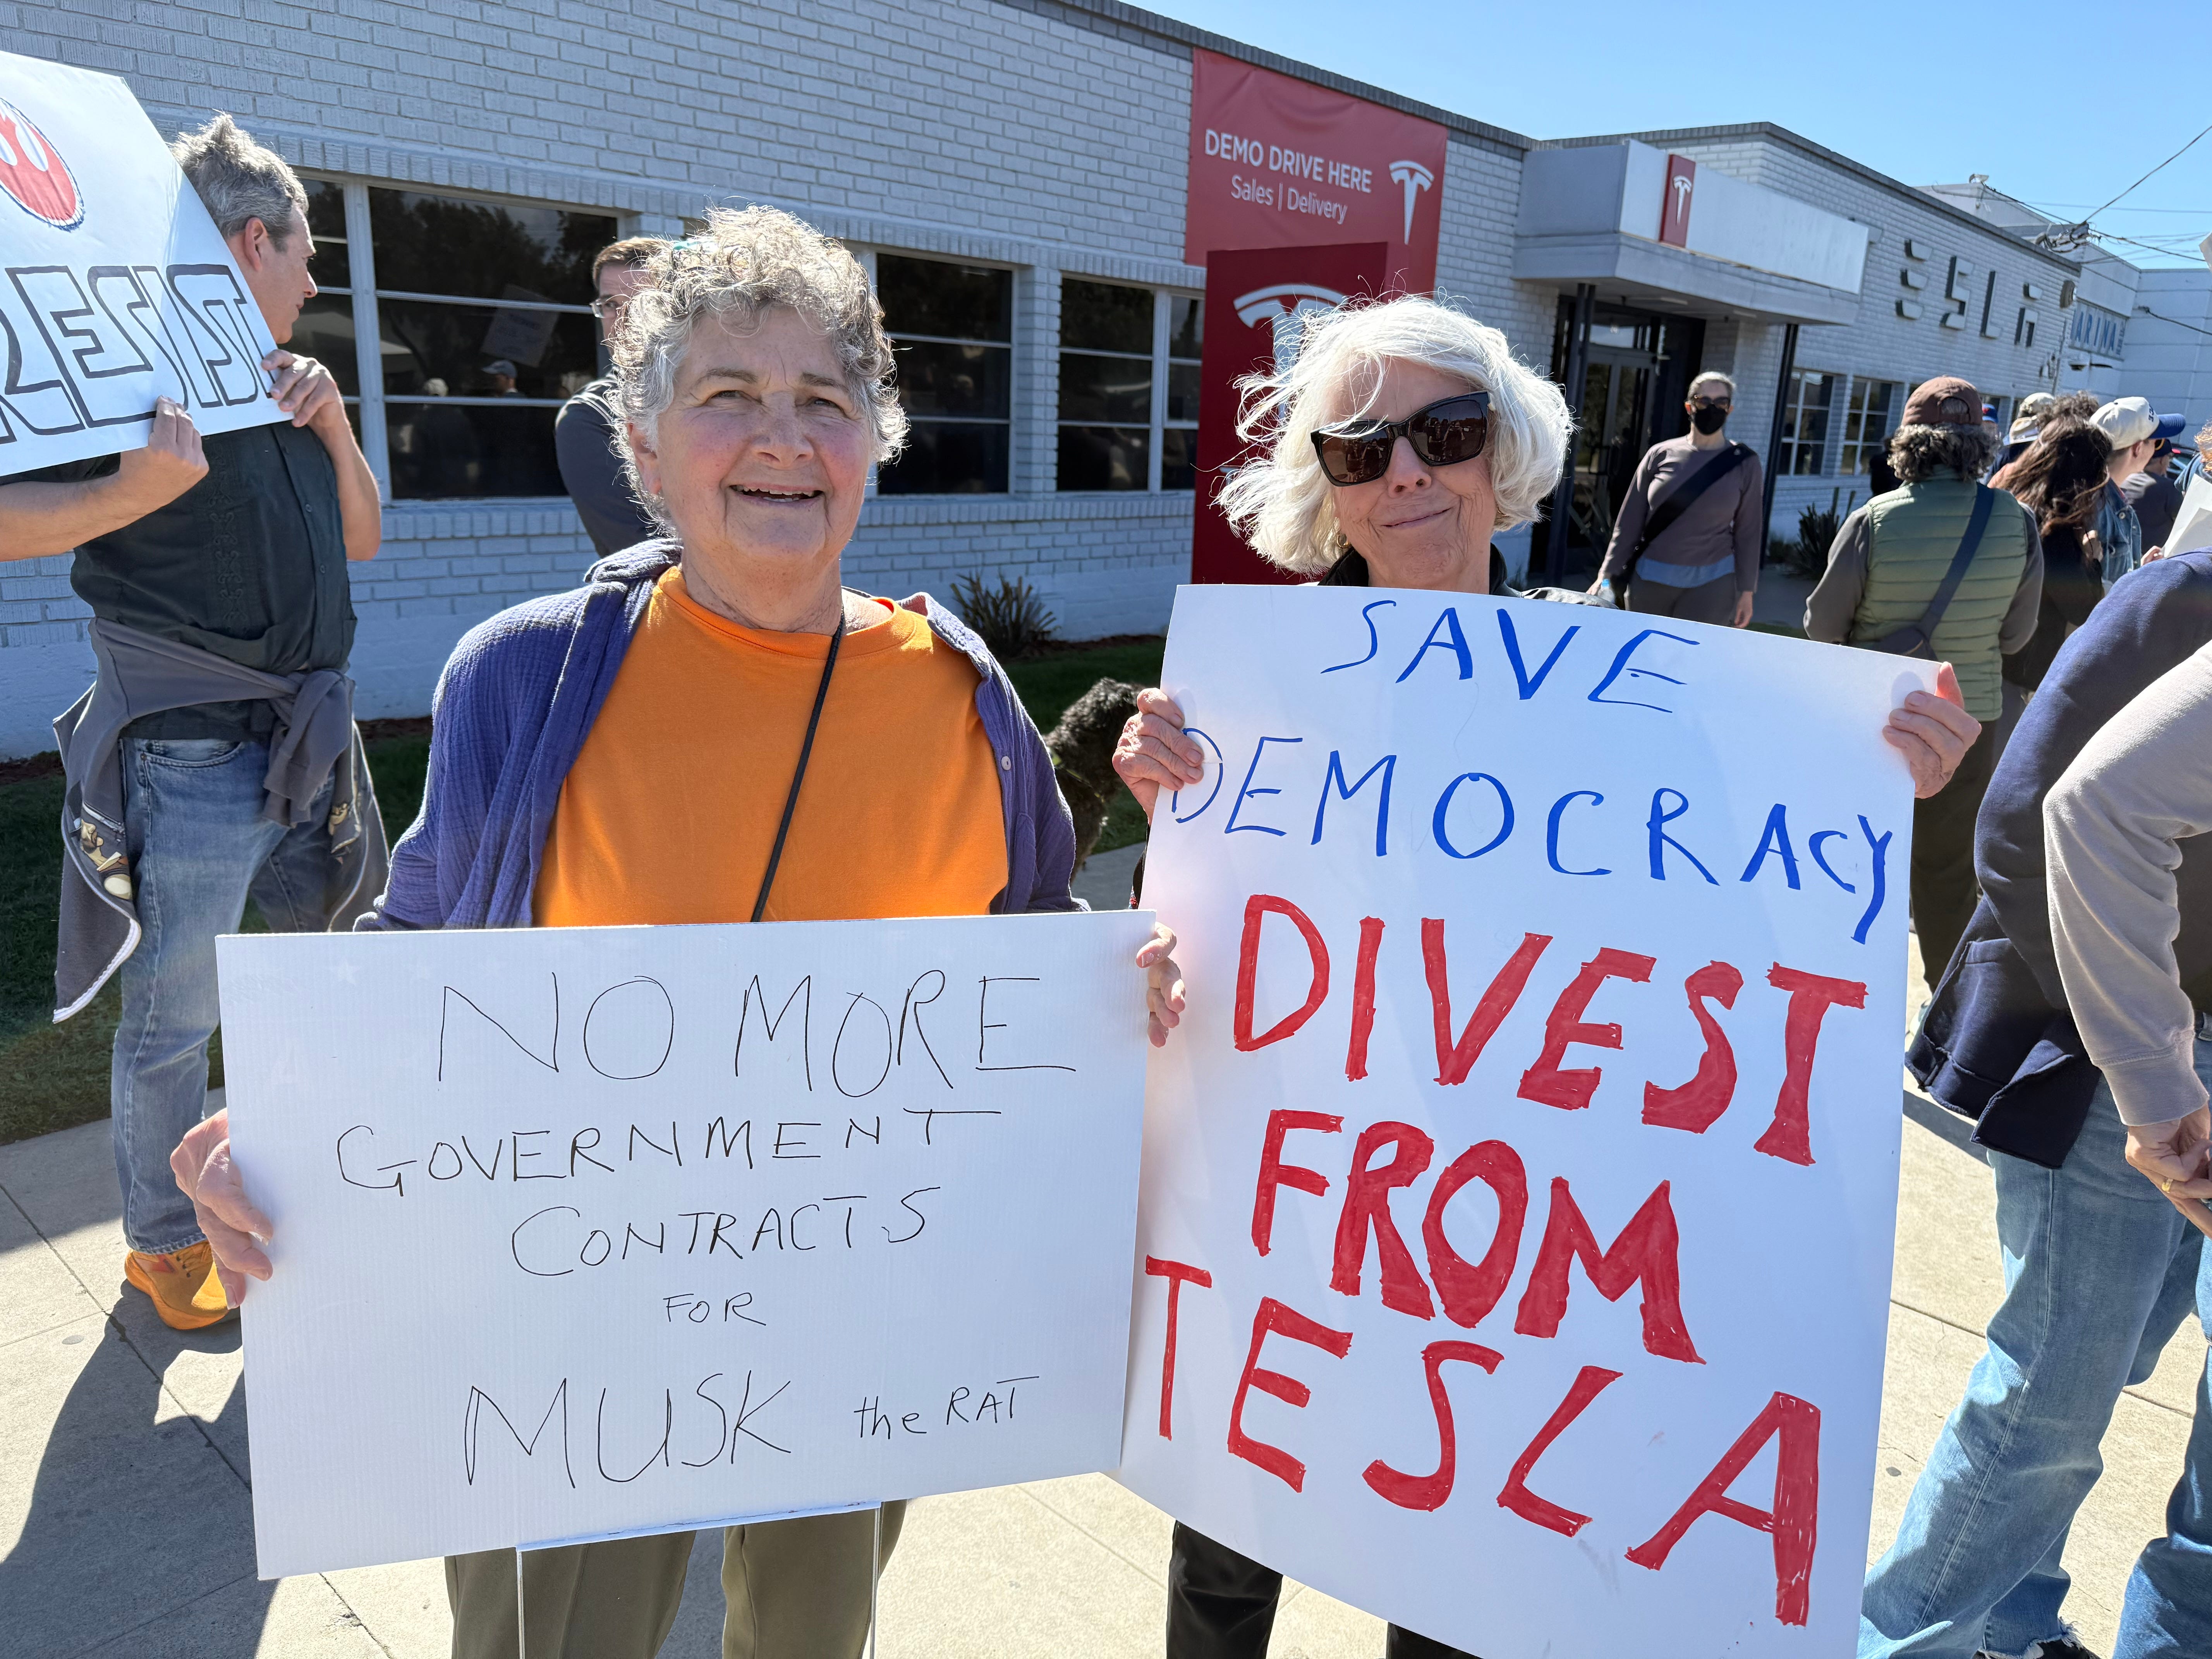 RESIST
DEMO DRIVE HERE
Sales | Delivery
TESLA
NO MORE
GOVERNMENT
CONTRACTS
FOR
MUSK the RAT
SAVE
DEMOCRACY
DIVEST
FROM
TESLA